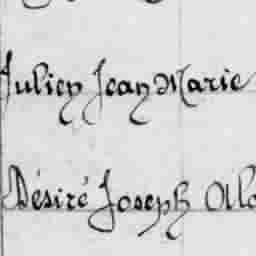 Julien Jean Marie
Désiré Joseph